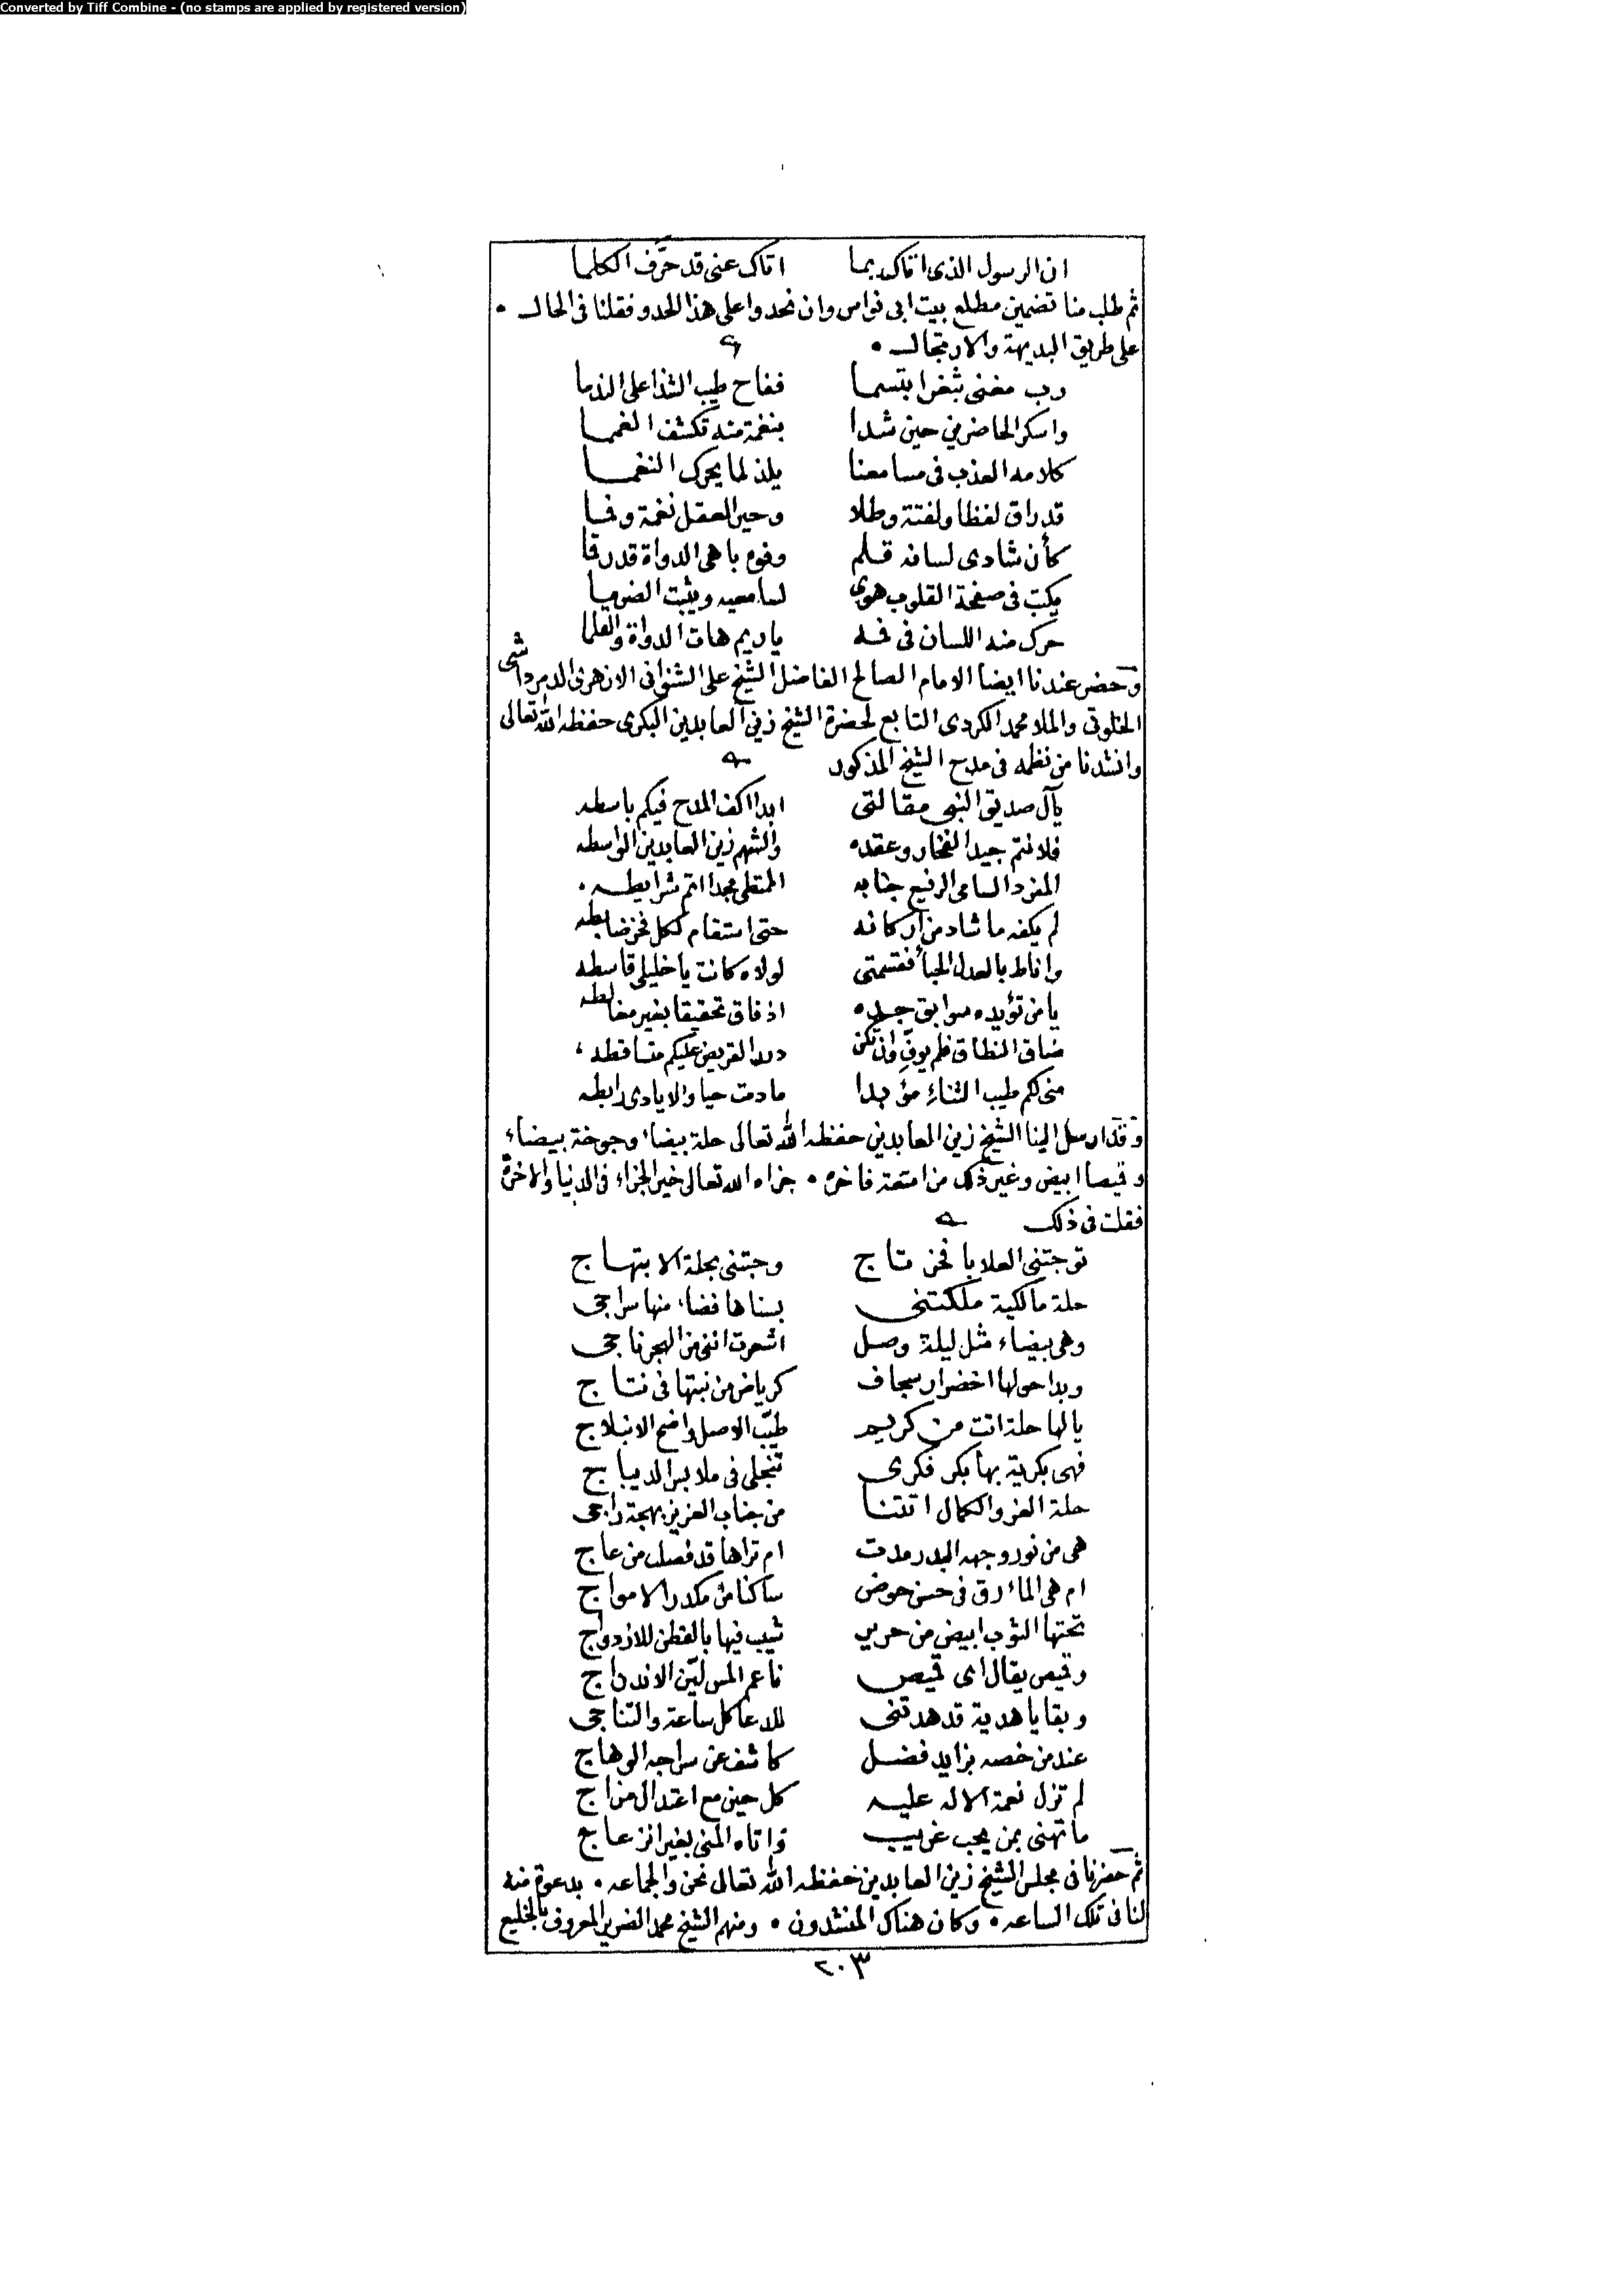 Converted by Tiff Combine - (no stamps are applied by registered version)
ان الرسول الذى اتاك بما اتاك عنى قد حرّف الكلما
ثم طلب منا تضمين مطلع بيت ابى نواس وان نحدوا على هذا الحدو فقلنا فى الحال •
على طريق البديهة والارتجال •
رب مغنى بثغر ابتسما ففاح طيب الشذا على الندما
واسكر الحاضرين حين شدا بنغمة منه تكشف الغمما
كلامه العذب فى مسامعنا يلذ لما يحرك النغما
قد راق لفظا ولفتة وطلا وحير العقل نغمة وفما
كأن شادى لسانه قلم وفوه باهى الدواة قد رقما
يكتب فى صفحة القلوب هوى لسامعيه ويثبت الضرما
حرك منه اللسان فى فمه ياريم هات الدواة والقلما
وحضر عندنا ايضا الامام الصالح الفاضل الشيخ على الشنوانى الازهرى الدمرداشى
الخلوتى والملا محمد الكردى التابع لحضرة الشيخ زين العابدين البكرى حفظه الله تعالى
وانشدنا من نظمه فى مدح الشيخ المذكور
يآل صديق النبى مقالتى ابدا اكف المدح فيكم باسطه
فلانتم جيد الفخار وعقده والشهم زين العابدين الواسطه
المفرد السامى الرفيع جنابه المتطى مجدا اتم شرايطه •
لم يكفه ما شاد من اركانه حتى استقام لكل فخر ضابطه
واناط بالعدل الجبأ فقسمتى لولاه كانت ياخليلى قاسطه
يامن تؤيده سوابق جده اذ فاق تحقيقا بغير مغالطه
ضاق النطاق فلم يوفِ وان تكن درر القريض عليكم متساقطه
منى لكم طيب الثناءِ مؤبدا مادمت حيا والايادى رابطه
وقد ارسل الينا الشيخ زين العابدين حفظه الله تعالى حلة بيضاء وجوخة بيضاء
وقميصا ابيض وغير ذلك من امتعة فاخرة • جزاه الله تعالى خير الجزاء فى الدنيا والاخرة
فقلت فى ذلك
توجتنى العلا بافخر تاج وحبتنى بحلة الابتهاج
حلة مالكية ملكتنى بسناها فضاء منها سراجى
وهى بيضاء مثل ليلة وصل اشعرت اننى من الهجر ناجى
وبدا حولها اخضرار سجاف كرياض من نبتها فى نتاج
يالها حلة اتت من كريم طيّب الاصل واضح الانبلاج
فهى بكرية بها بكر فكرى تنجلى فى ملابس الديباج
حلة العز والكمال اتتنا من جناب العزيز بهجة راجى
هى من نور وجهه البدر مدت ام تراها قد فصلت من عاج
ام هى الماء رق فى حسن حوض ساكنا من مكدر الامواج
تحتها الثوب ابيض من حرير شيب فيها بالقطن للازدواج
وقميص يقال اى قميص ناعم المس ليّن الاندراج
وبقايا هدية قد هدتنى للدعا كل ساعة والتناجى
عند من خصه بزايد فضل كاشف عن سراجه الوهاج
لم تزل نعمة الاله عليه كل حين مع اعتدال مزاج
ما تهنى بمن يحب غريب واتاه المنى بغير انزعاج
ثم حضرنا فى مجلس الشيخ زين العابدين حفظه الله تعالى نحن والجماعه • بدعوة منه
لنا فى تلك الساعه • وكان هناك المنشدون • ومنهم الشيخ محمد الضرير المعروف بالخليع
٢٠٣